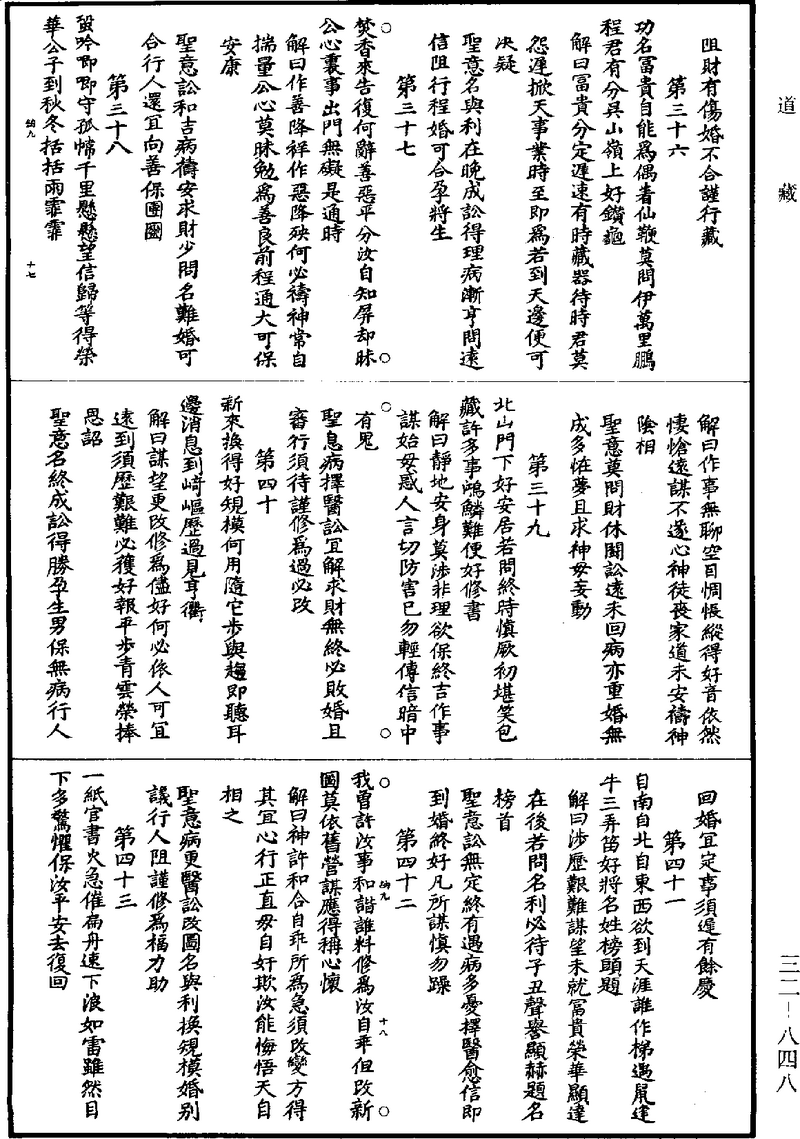 道藏
阻財有傷婚不合謹行藏
第三十六
功名冨貴自能為偶者仙鞭莫問伊萬里鵬
程君有分吳山嶺上好鑽龜
解曰冨貴分定遲速有時藏器待時君莫
怨遲掀天事業時至即為若到天邊便可
决疑
聖意名與利在晚成訟得理病漸亨問遠
信阻行程婚可合孕將生
第三十七
焚香來告復何辭善惡平分汝自知屏却昧
公心裏事出門無礙是通時
解曰作善降祥作惡降殃何必禱神常自
揣量公心莫昧勉為善良前程通大可保
安康
聖意訟和吉病禱安求財少問名難婚可
合行人還宜向善保團圞
第三十八
蛩吟唧唧守孤幃千里懸懸望信歸等得榮
華公子到秋冬括括雨霏霏
十七
解曰作事無聊空自惆悵縱得好音依然
悽愴遠謀不遂心神徒喪家道未安禱神
陰相
聖意莫問財休鬭訟遠未回病亦重婚無
成多怪夢且求神毋妄動
第三十九
北山門下好安居若問終時慎厥初堪笑包
藏許多事鴻鱗難便好修書
解曰靜地安身莫涉非理欲保終吉作事
謀始毋惑人言切防害已勿輕傳信暗中
有鬼
聖息病擇醫訟宜解求財無終必敗婚且
審行須待謹修為過必改
第四十
新來換得好規模何用隨它步與趨即聽耳
邊消息到崎嶇歷過見亨衢
解曰謀望更改修為儘好何必依人可宜
遠到須歷艱難必獲好報平步青雲榮捧
恩詔
聖意名終成訟得勝孕生男保無病行人
回婚宜定事須遲有餘慶
第四十一
自南自北自東西欲到天涯誰作梯遇鼠逢
牛三弄笛好將名姓榜頭題
解曰涉歷艱難謀望未就冨貴榮華顯達
在後若問名利必待子丑聲譽顯赫題名
榜首
聖意訟無定終有遇病多憂擇醫愈信即
到婚終好凡所謀慎勿躁
第四十二
我曽許汝事和諧誰料修為汝自乖但改新
圖莫依舊營謀應得稱心懷
解曰神許和合自乖所為急須改變方得
其宜心行正直毋自奸欺汝能悔悟天自
相之
聖意病更醫訟改圖名與利換規模婚别
議行人阻謹修為福力助
第四十三
一紙官書火急催扁舟速下浪如雷雖然目
下多驚懼保汝平安去復回
十八
三二－八四八